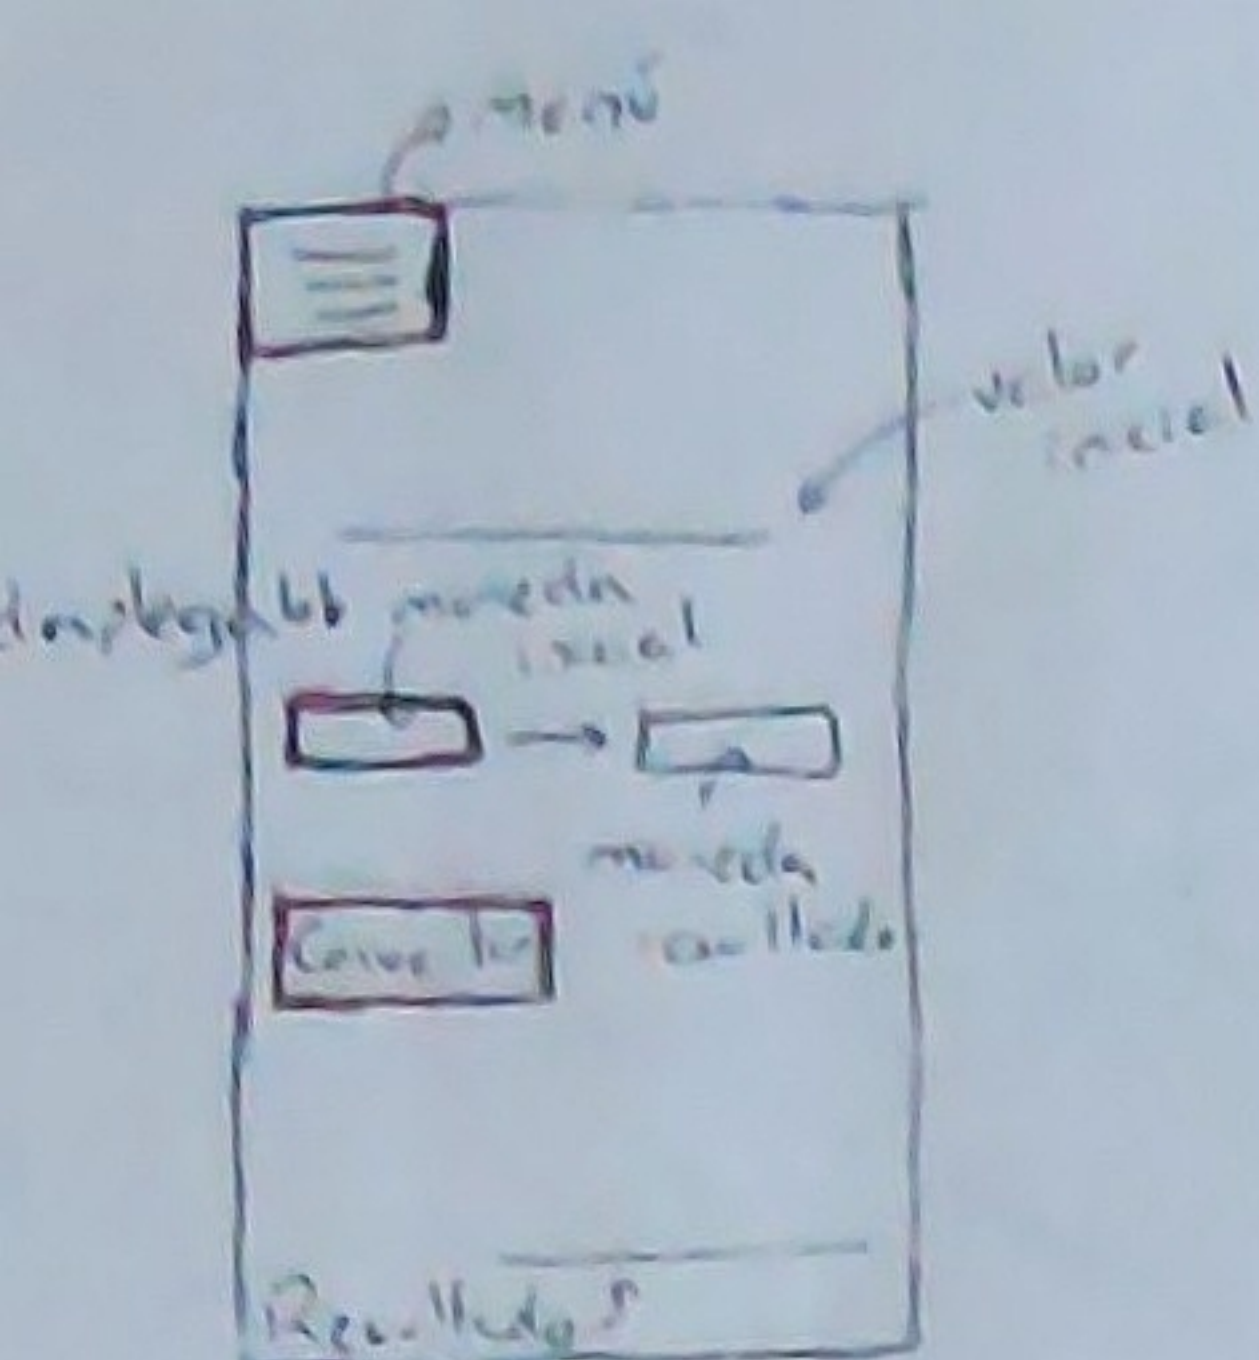 Menú
valor
inicial
desplegable moneda
inicial
moneda
resultado
Convertir
Resultado